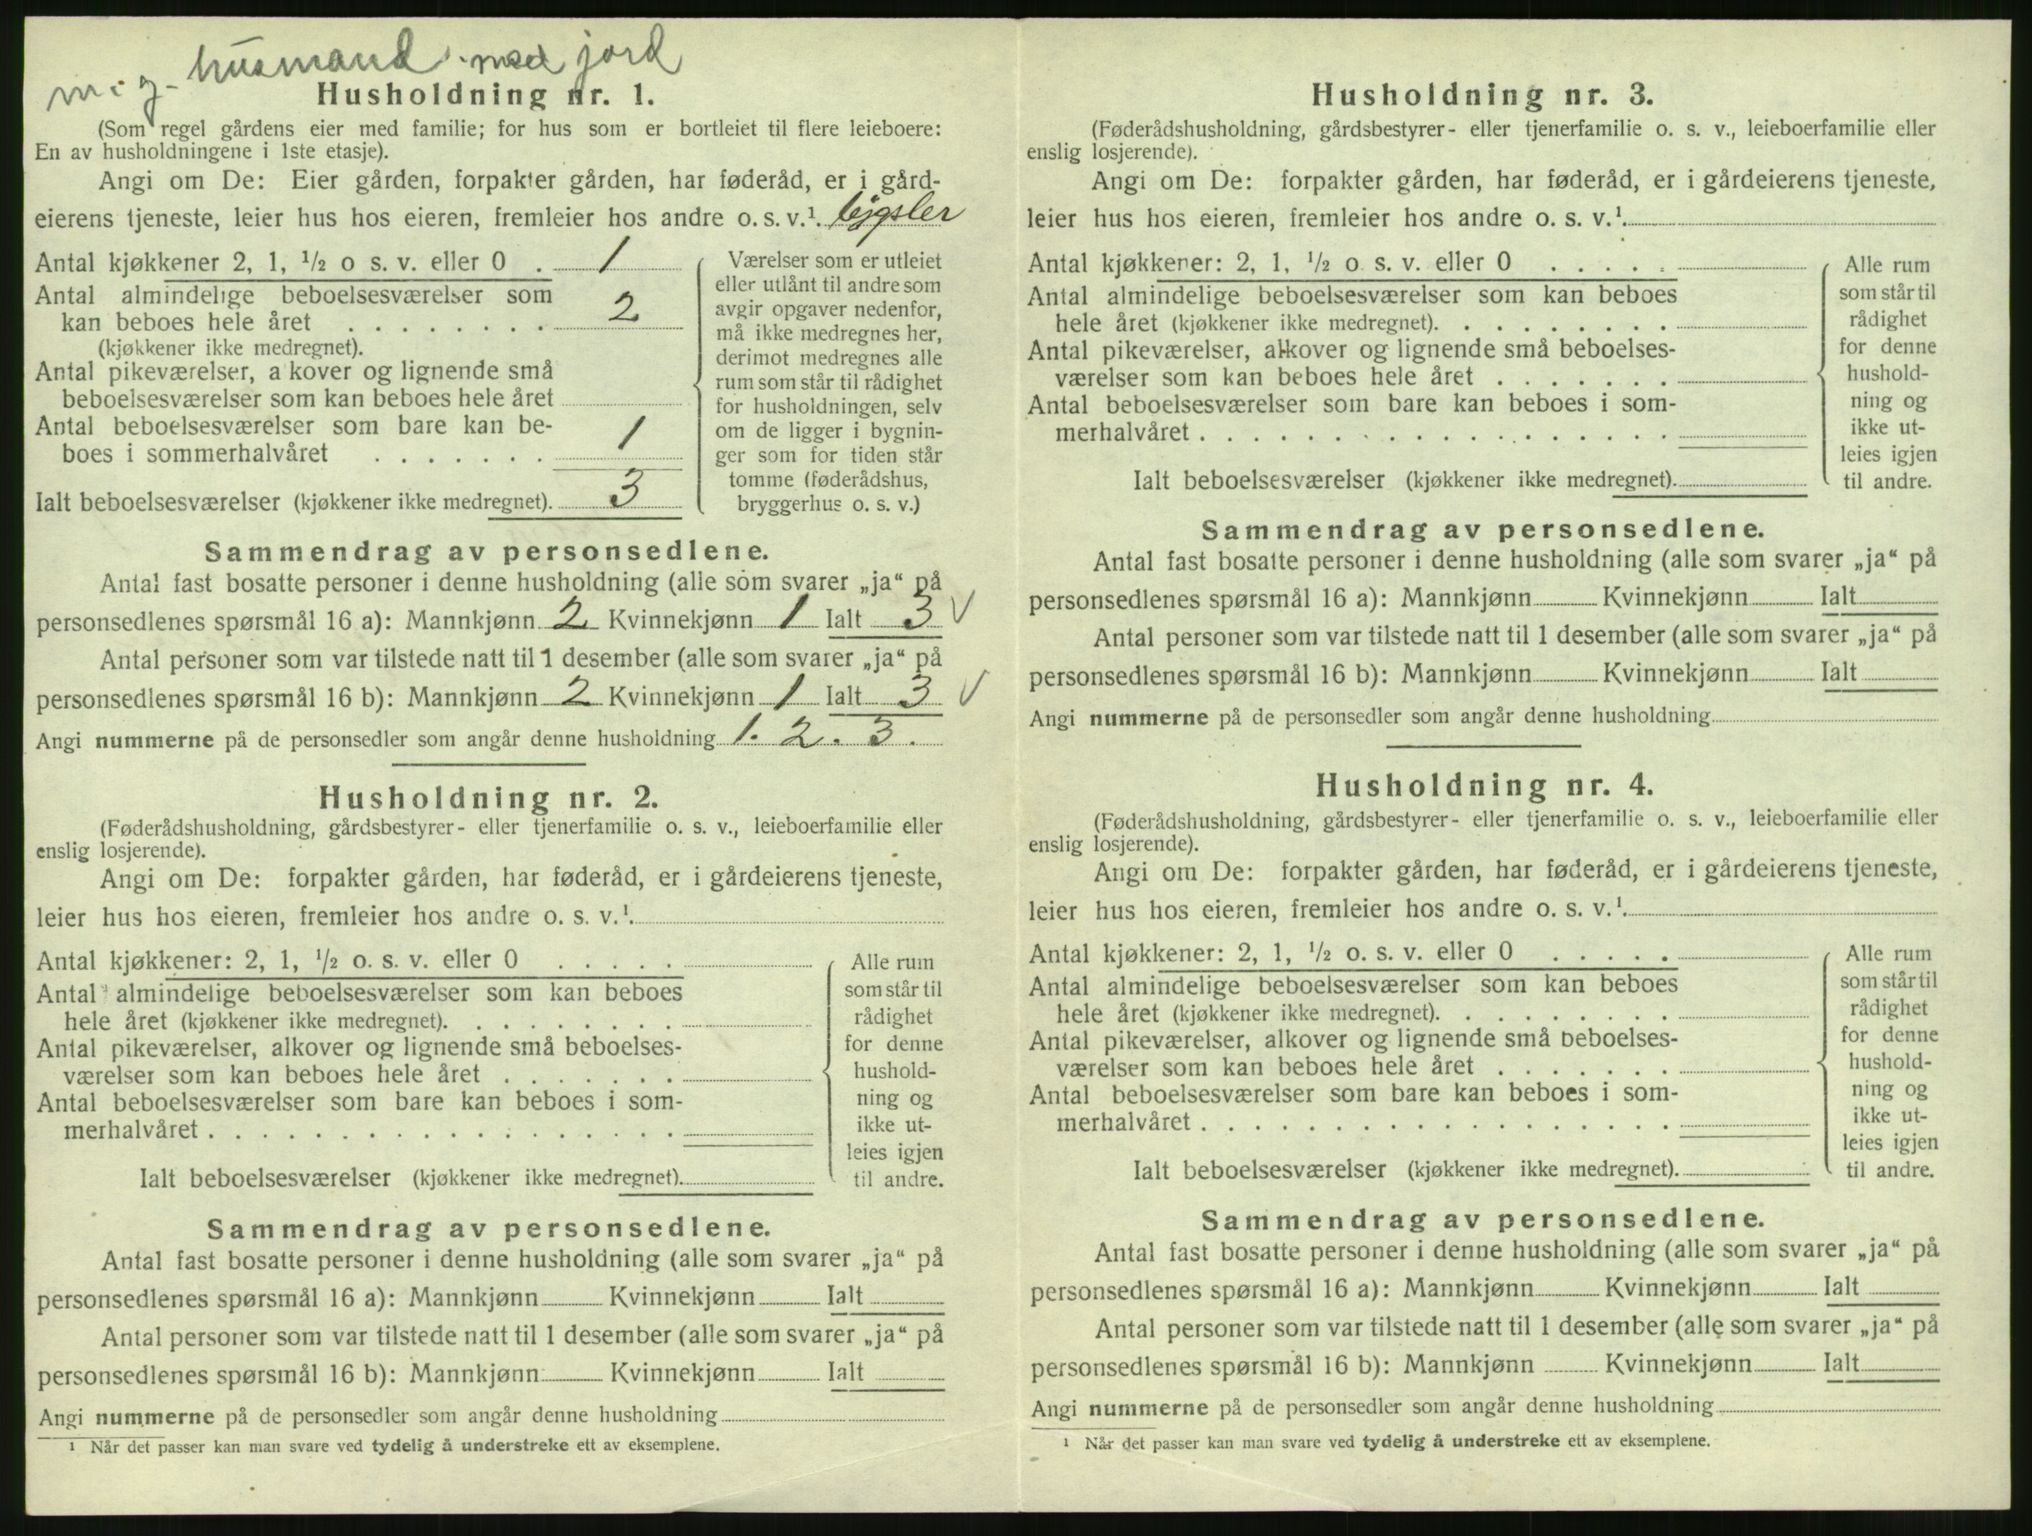 m. j. husmand med jord
Husholdning nr. 1.
(Som regel gårdens eier med familie; for hus som er bortleiet til flere leieboere:
En av husholdningene i 1ste etasje).
Angi om De: Eier gården, forpakter gården, har føderåd, er i gård-
eierens tjeneste, leier hus hos eieren, fremleier hos andre o. s. v.¹ bygsler
Antal kjøkkener 2, 1, ½ o s. v. eller 0 . 1
Antal almindelige beboelsesværelser som
kan beboes hele året . . . . . . . . 2
(kjøkkener ikke medregnet).
Antal pikeværelser, a kover og lignende små
beboelsesværelser som kan beboes hele året
Antal beboelsesværelser som bare kan be-
boes i sommerhalvåret . . . . . . . 1
Ialt beboelsesværelser (kjøkkener ikke medregnet). 3
Værelser som er utleiet
eller utlånt til andre som
avgir opgaver nedenfor,
må ikke medregnes her,
derimot medregnes alle
rum som står til rådighet
for husholdningen, selv
om de ligger i bygnin-
ger som for tiden står
tomme (føderådshus,
bryggerhus o. s. v.)
Sammendrag av personsedlene.
Antal fast bosatte personer i denne husholdning (alle som svarer „ja“ på
personsedlenes spørsmål 16 a): Mannkjønn 2 Kvinnekjønn 1 Ialt 3 ✓
Antal personer som var tilstede natt til 1 desember (alle som svarer „ja“ på
personsedlenes spørsmål 16 b): Mannkjønn 2 Kvinnekjønn 1 Ialt 3 ✓
Angi nummerne på de personsedler som angår denne husholdning 1. 2. 3.
Husholdning nr. 2.
(Føderådshusholdning, gårdsbestyrer- eller tjenerfamilie o. s. v., leieboerfamilie eller
enslig losjerende).
Angi om De: forpakter gården, har føderåd, er i gårdeierens tjeneste,
leier hus hos eieren, fremleier hos andre o. s. v.¹
Antal kjøkkener: 2, 1, ½ o. s. v. eller 0 . . . . .
Antal almindelige beboelsesværelser som kan beboes
hele året (kjøkkener ikke medregnet). . . . . . . . .
Antal pikeværelser, alkover og lignende små beboelses-
værelser som kan beboes hele året . . . . . . .
Antal beboelsesværelser som bare kan beboes i som-
merhalvåret . . . . . . . . . . . . . . . . . .
Ialt beboelsesværelser (kjøkkener ikke medregnet).
Alle rum
som står til
rådighet
for denne
hushold-
ning og
ikke ut-
leies igjen
til andre.
Sammendrag av personsedlene.
Antal fast bosatte personer i denne husholdning (alle som svarer „ja“ på
personsedlenes spørsmål 16 a): Mannkjønn Kvinnekjønn Ialt
Antal personer som var tilstede natt til 1 desember (alle som svarer „ja“ på
personsedlenes spørsmål 16 b): Mannkjønn Kvinnekjønn Ialt
Angi nummerne på de personsedler som angår denne husholdning
¹ Når det passer kan man svare ved tydelig å understreke ett av eksemplene.
Husholdning nr. 3.
(Føderådshusholdning, gårdsbestyrer- eller tjenerfamilie o. s. v., leieboerfamilie eller
enslig losjerende).
Angi om De: forpakter gården, har føderåd, er i gårdeierens tjeneste,
leier hus hos eieren, fremleier hos andre o. s. v.¹
Antal kjøkkener: 2, 1, ½ o. s. v. eller 0 . . . . .
Antal almindelige beboelsesværelser som kan beboes
hele året (kjøkkener ikke medregnet). . . . . . . . .
Antal pikeværelser, alkover og lignende små beboelses-
værelser som kan beboes hele året . . . . . . .
Antal beboelsesværelser som bare kan beboes i som-
merhalvåret . . . . . . . . . . . . . . . . . .
Ialt beboelsesværelser (kjøkkener ikke medregnet).
Alle rum
som står til
rådighet
for denne
hushold-
ning og
ikke ut-
leies igjen
til andre.
Sammendrag av personsedlene.
Antal fast bosatte personer i denne husholdning (alle som svarer „ja“ på
personsedlenes spørsmål 16 a): Mannkjønn Kvinnekjønn Ialt
Antal personer som var tilstede natt til 1 desember (alle som svarer „ja“ på
personsedlenes spørsmål 16 b): Mannkjønn Kvinnekjønn Ialt
Angi nummerne på de personsedler som angår denne husholdning
Husholdning nr. 4.
(Føderådshusholdning, gårdsbestyrer- eller tjenerfamilie o. s. v., leieboerfamilie eller
enslig losjerende).
Angi om De: forpakter gården, har føderåd, er i gårdeierens tjeneste,
leier hus hos eieren, fremleier hos andre o. s. v.¹
Antal kjøkkener: 2, 1, ½ o. s. v. eller 0 . . . . .
Antal almindelige beboelsesværelser som kan beboes
hele året (kjøkkener ikke medregnet). . . . . . . . .
Antal pikeværelser, alkover og lignende små beboelses-
værelser som kan beboes hele året . . . . . . .
Antal beboelsesværelser som bare kan beboes i som-
merhalvåret . . . . . . . . . . . . . . . . . .
Ialt beboelsesværelser (kjøkkener ikke medregnet).
Alle rum
som står til
rådighet
for denne
hushold-
ning og
ikke ut-
leies igjen
til andre.
Sammendrag av personsedlene.
Antal fast bosatte personer i denne husholdning (alle som svarer „ja“ på
personsedlenes spørsmål 16 a): Mannkjønn Kvinnekjønn Ialt
Antal personer som var tilstede natt til 1 desember (alle som svarer „ja“ på
personsedlenes spørsmål 16 b): Mannkjønn Kvinnekjønn Ialt
Angi nummerne på de personsedler som angår denne husholdning
¹ Når det passer kan man svare ved tydelig å understreke ett av eksemplene.